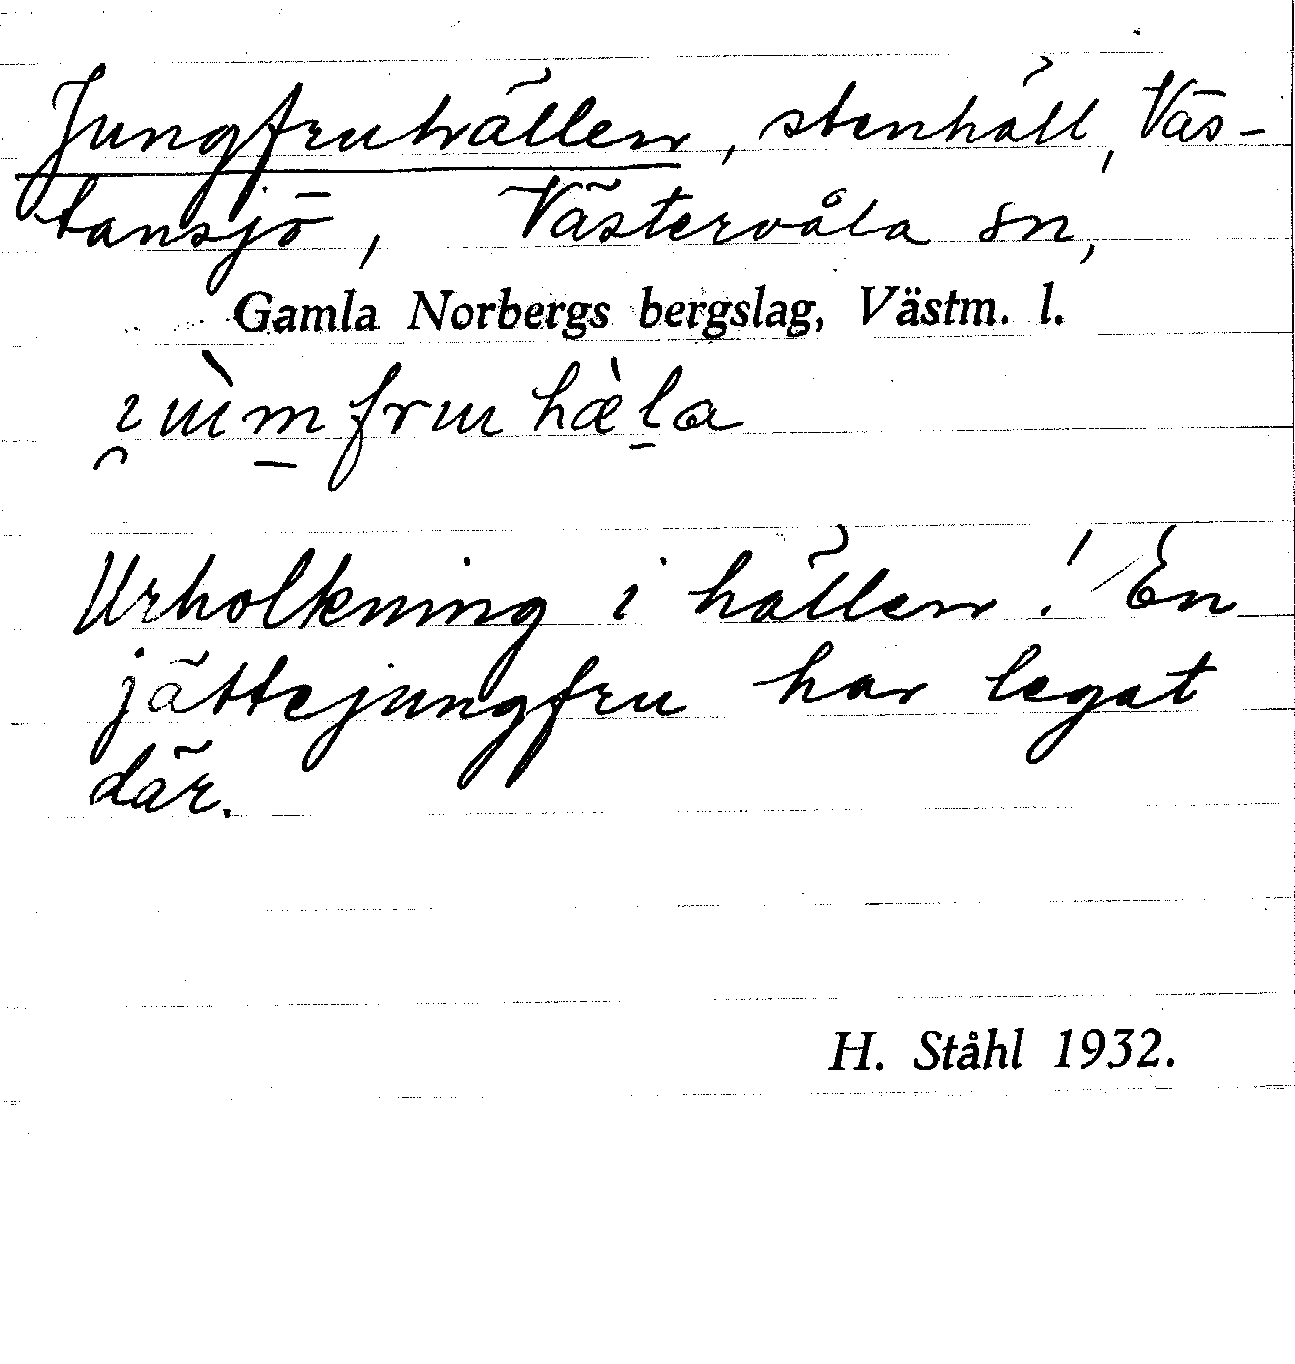 Jungfruhällen, stenhäll, Väs-
tansjö, Västervåla sn,
Gamla Norbergs bergslag, Västm. l.
Urholkning i hällen! En
jättejungfru har legat
där.
H. Ståhl 1932.